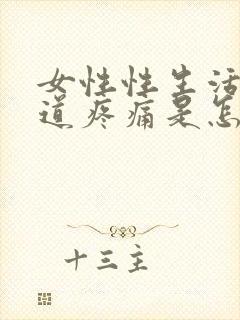 女性性生活
道疼痛是怎
十三主